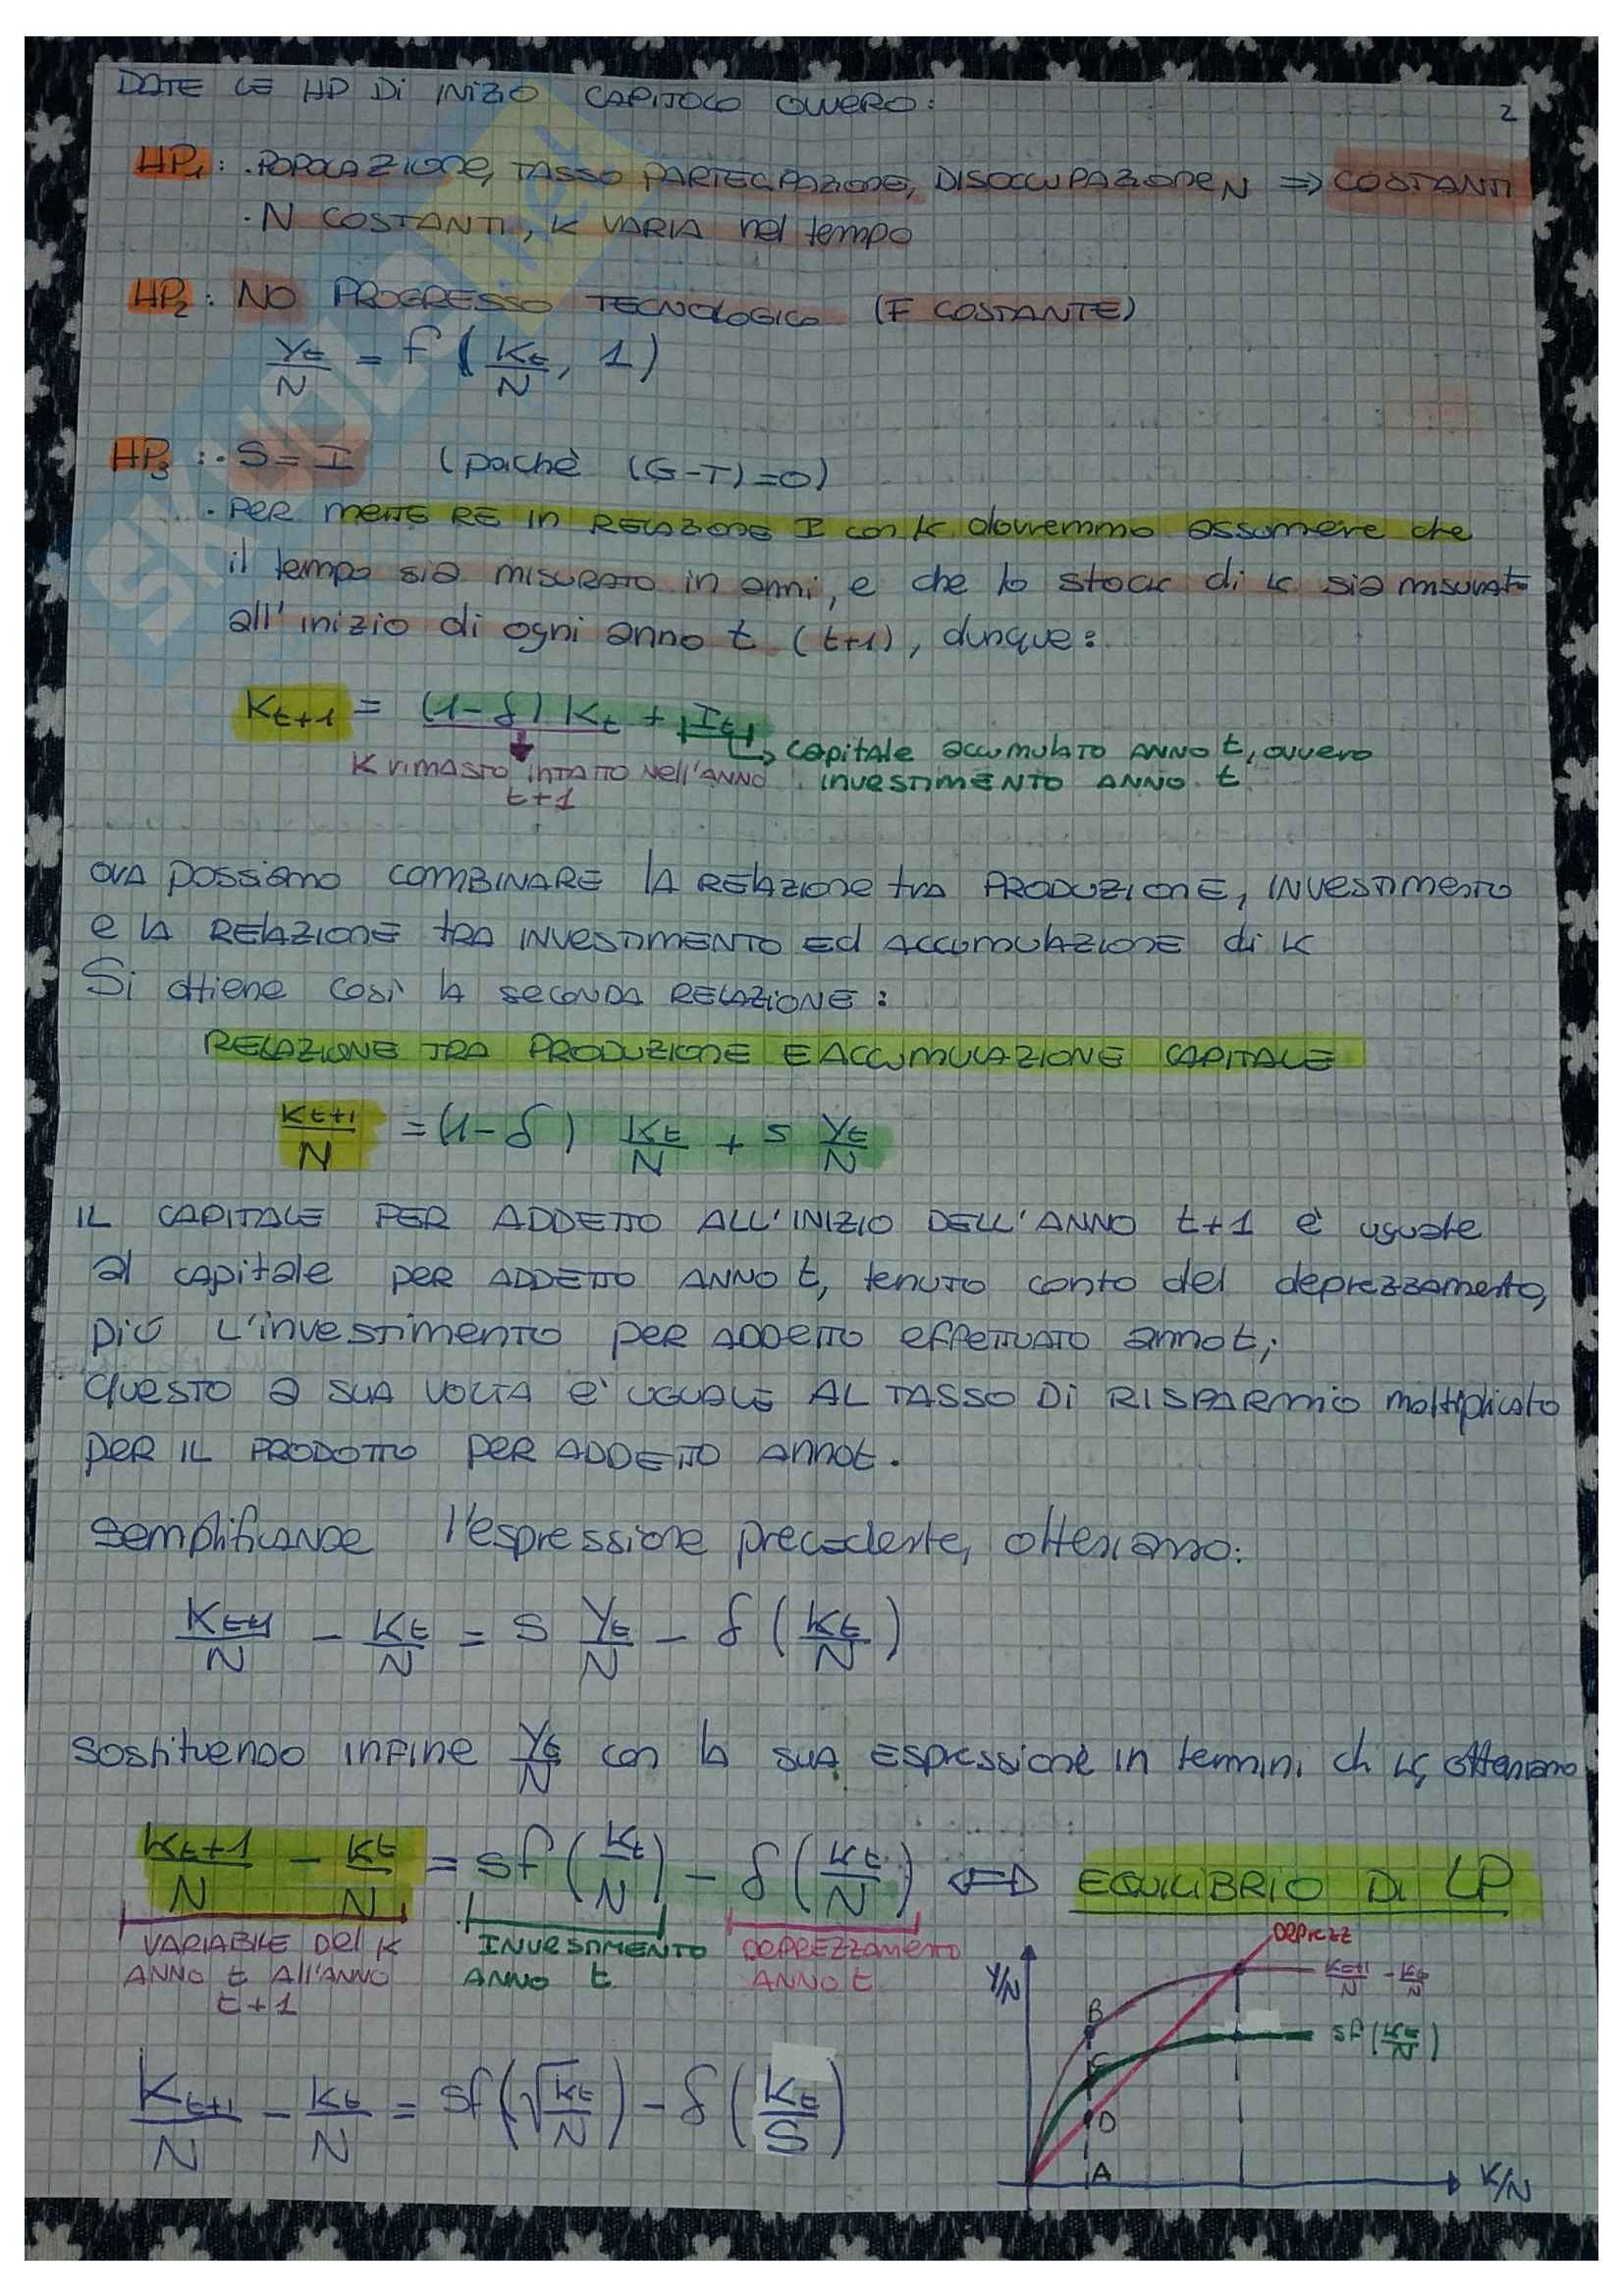 DATE LE HP Di INIZIO CAPITOLO OVVERO:
2
HP1: · POPOLAZIONE, TASSO PARTECIPAZIONE, DISOCCUPAZIONE N ⇒ COSTANTI
· N COSTANTI, K VARIA nel tempo
HP2: NO PROGRESSO TECNOLOGICO (F COSTANTE)
Yt/N = f (Kt/N, 1)
HP3: · S = I (poichè (G-T)=0)
· PER METTERE IN RELAZIONE I con K dovremmo assumere che
il tempo sia MISURATO in anni, e che lo stock di K sia misurato
all'inizio di ogni anno t (t+1), dunque:
Kt+1 = (1-δ) Kt + It
capitale accumulato ANNO t, ovvero
K rimasto INTATTO NELL'ANNO
INVESTIMENTO ANNO t
t+1
ORA possiamo COMBINARE LA RELAZIONE tra PRODUZIONE, INVESTIMENTO
e LA RELAZIONE TRA INVESTIMENTO ED ACCUMULAZIONE di K
Si ottiene così la SECONDA RELAZIONE:
RELAZIONE TRA PRODUZIONE E ACCUMULAZIONE CAPITALE
Kt+1/N = (1-δ) Kt/N + s Yt/N
IL CAPITALE PER ADDETTO ALL'INIZIO DELL'ANNO t+1 è uguale
al capitale per ADDETTO ANNO t, tenuto conto del deprezzamento,
più L'investimento per ADDETTO effettuato anno t;
questo a sua volta è uguale al TASSO Di RISPARMIO moltiplicato
per IL PRODOTTO per ADDETTO anno t.
Semplificando l'espressione precedente, otteniamo:
Kt+1/N - Kt/N = s Yt/N - δ (Kt/N)
Sostituendo INFINE Yt/N con la sua Espressione in termini di K, otteniamo
Kt+1/N - Kt/N = sf (Kt/N) - δ (Kt/N) ⟺ EQUILIBRIO DI LP
VARIABILE Del K
ANNO t All'ANNO
t+1
INVESTIMENTO
ANNO t
DEPREZZAMENTO
ANNO t
DEPREZZ
Y/N
Kt+1/N - Kt/N
B
sf(Kt/N)
C
D
A
K/N
Kt+1/N - Kt/N = sf(√Kt/N) - δ (Kt/S)
SKUOLA.net